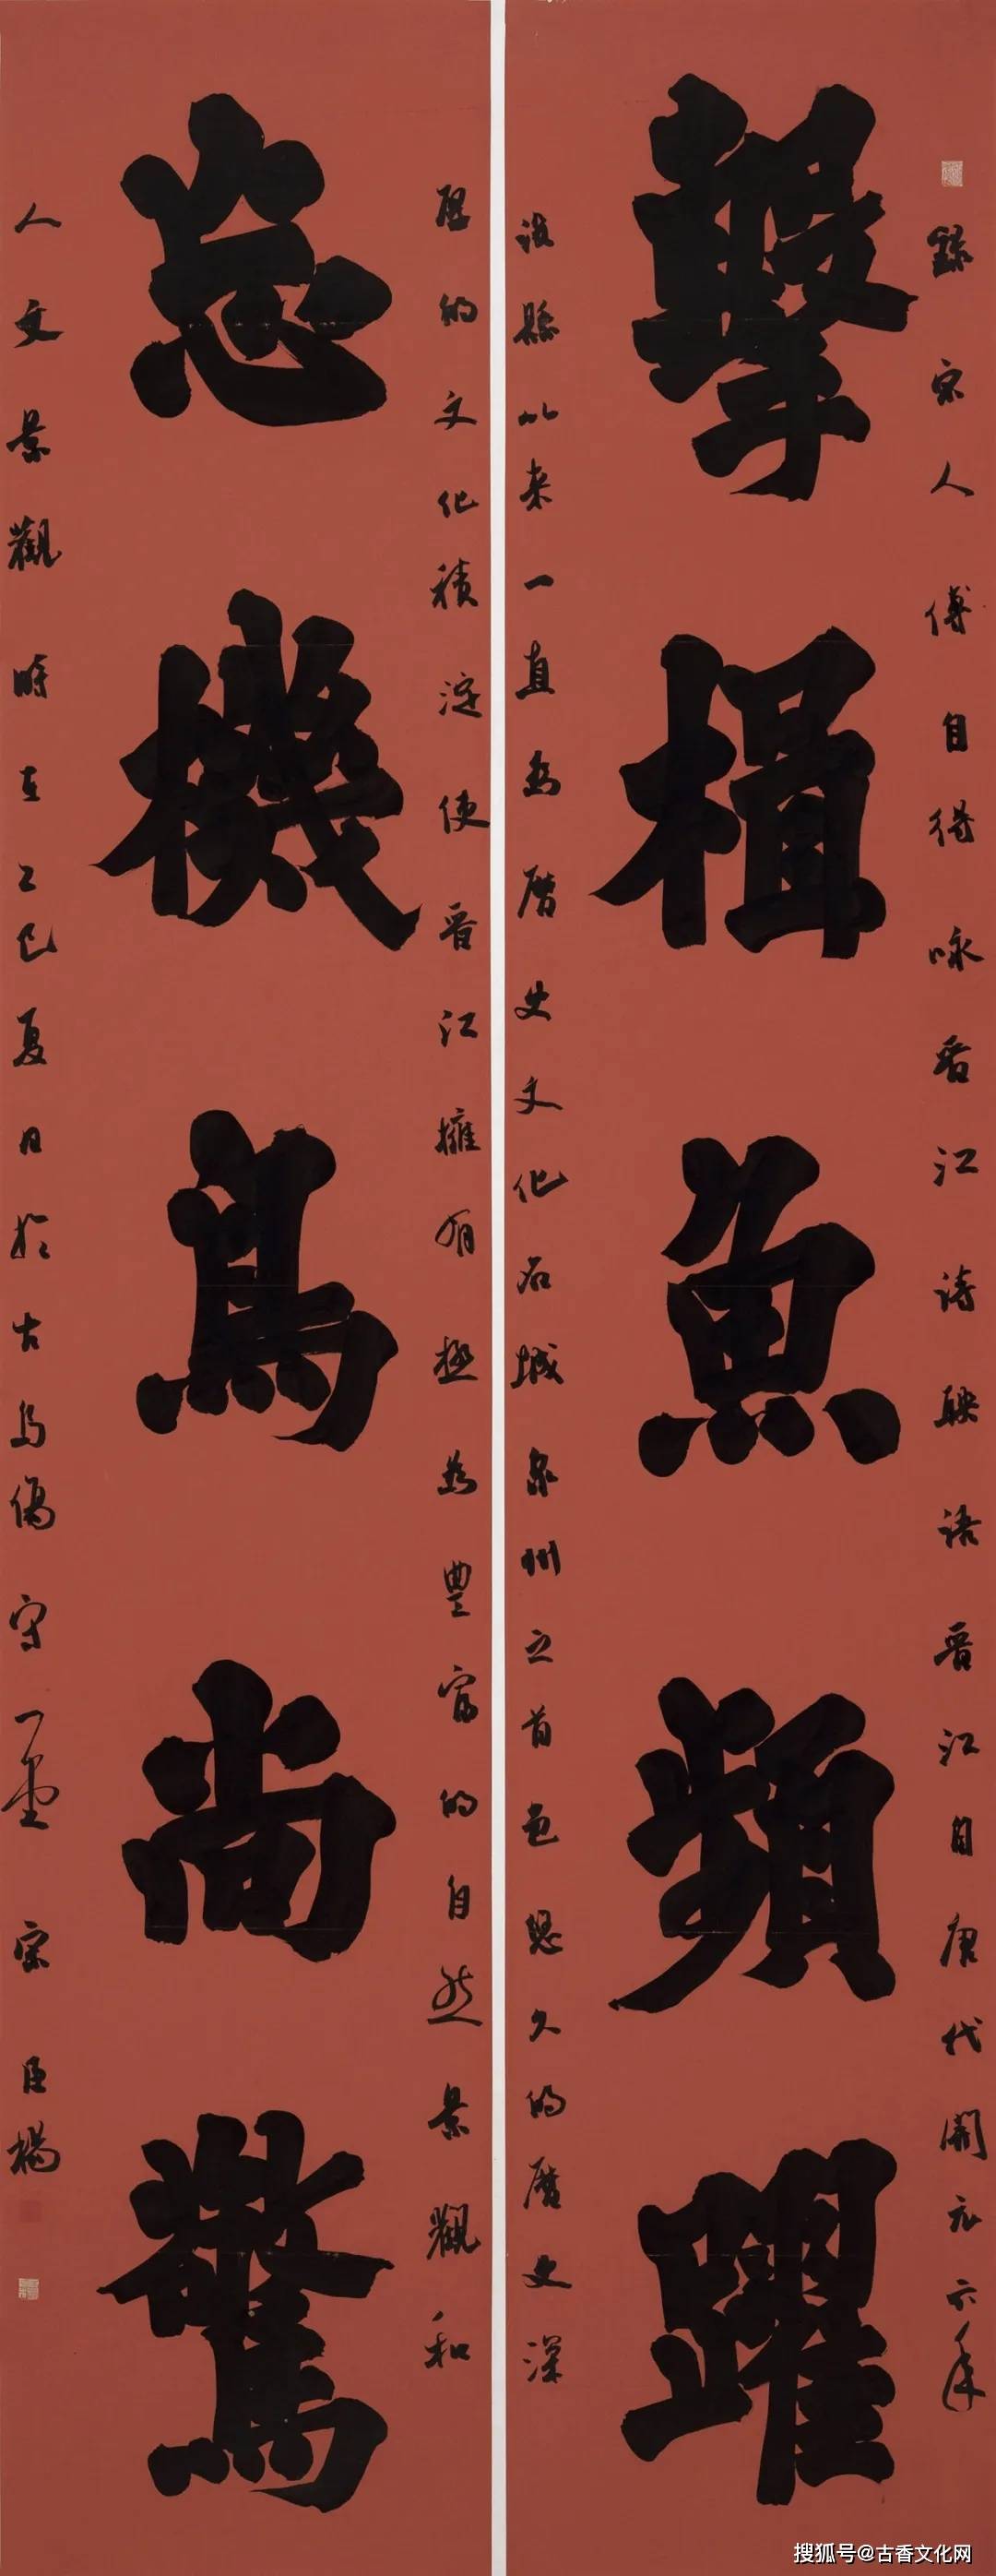 錄宋人傅自得咏晋江詩聯語晋江自唐代開元六年
擊楫魚頻躍
設縣以来一直為歷史文化名城泉州之首邑悠久的歷史深
厚的文化積淀使晋江擁有極為豐富的自然景觀和
忘機鳥尚驚
人文景觀時在乙巳夏日於古烏傷守一堂宗臣楊
搜狐号@古香文化网